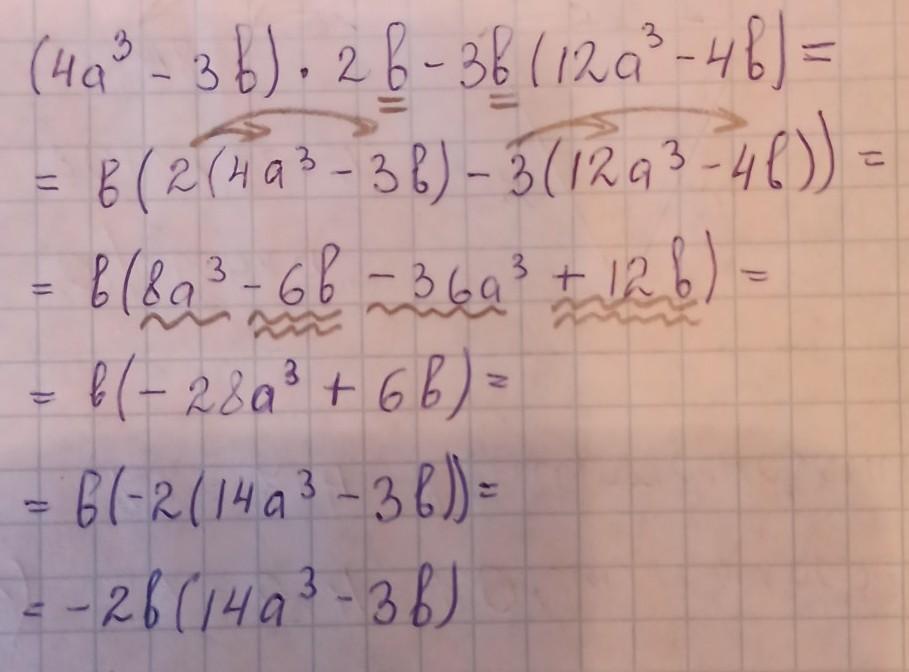 (4a³ - 3b) · 2b - 3b(12a³ - 4b) =
= b(2(4a³ - 3b) - 3(12a³ - 4b)) =
= b(8a³ - 6b - 36a³ + 12b) =
= b(-28a³ + 6b) =
= b(-2(14a³ - 3b)) =
= -2b(14a³ - 3b)